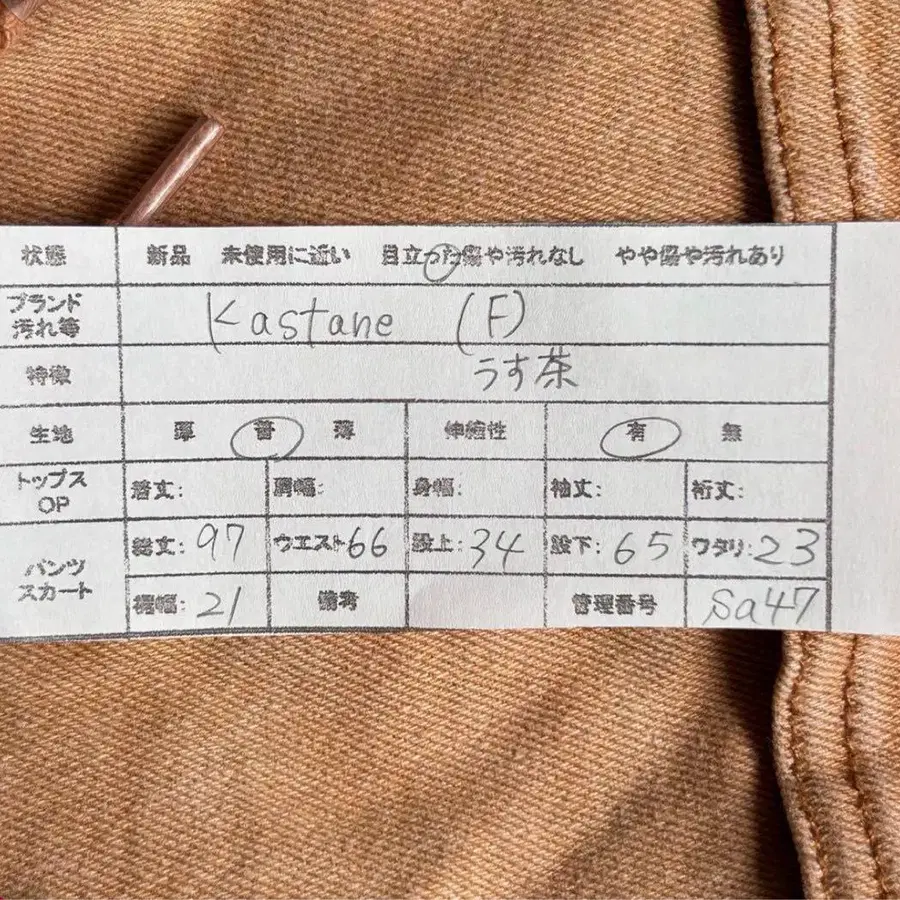 状態 新品 未使用に近い 目立った傷や汚れなし やや傷や汚れあり
ブランド
汚れ等 Kastane (F)
特徴 うす茶
生地 厚 普 薄 伸縮性 有 無
トップス
OP 着丈: 肩幅: 身幅: 袖丈: 裄丈:
パンツ
スカート
総丈: 97 ウエスト66 股上: 34 股下: 65 ワタリ: 23
裾幅: 21 備考 管理番号 sa47